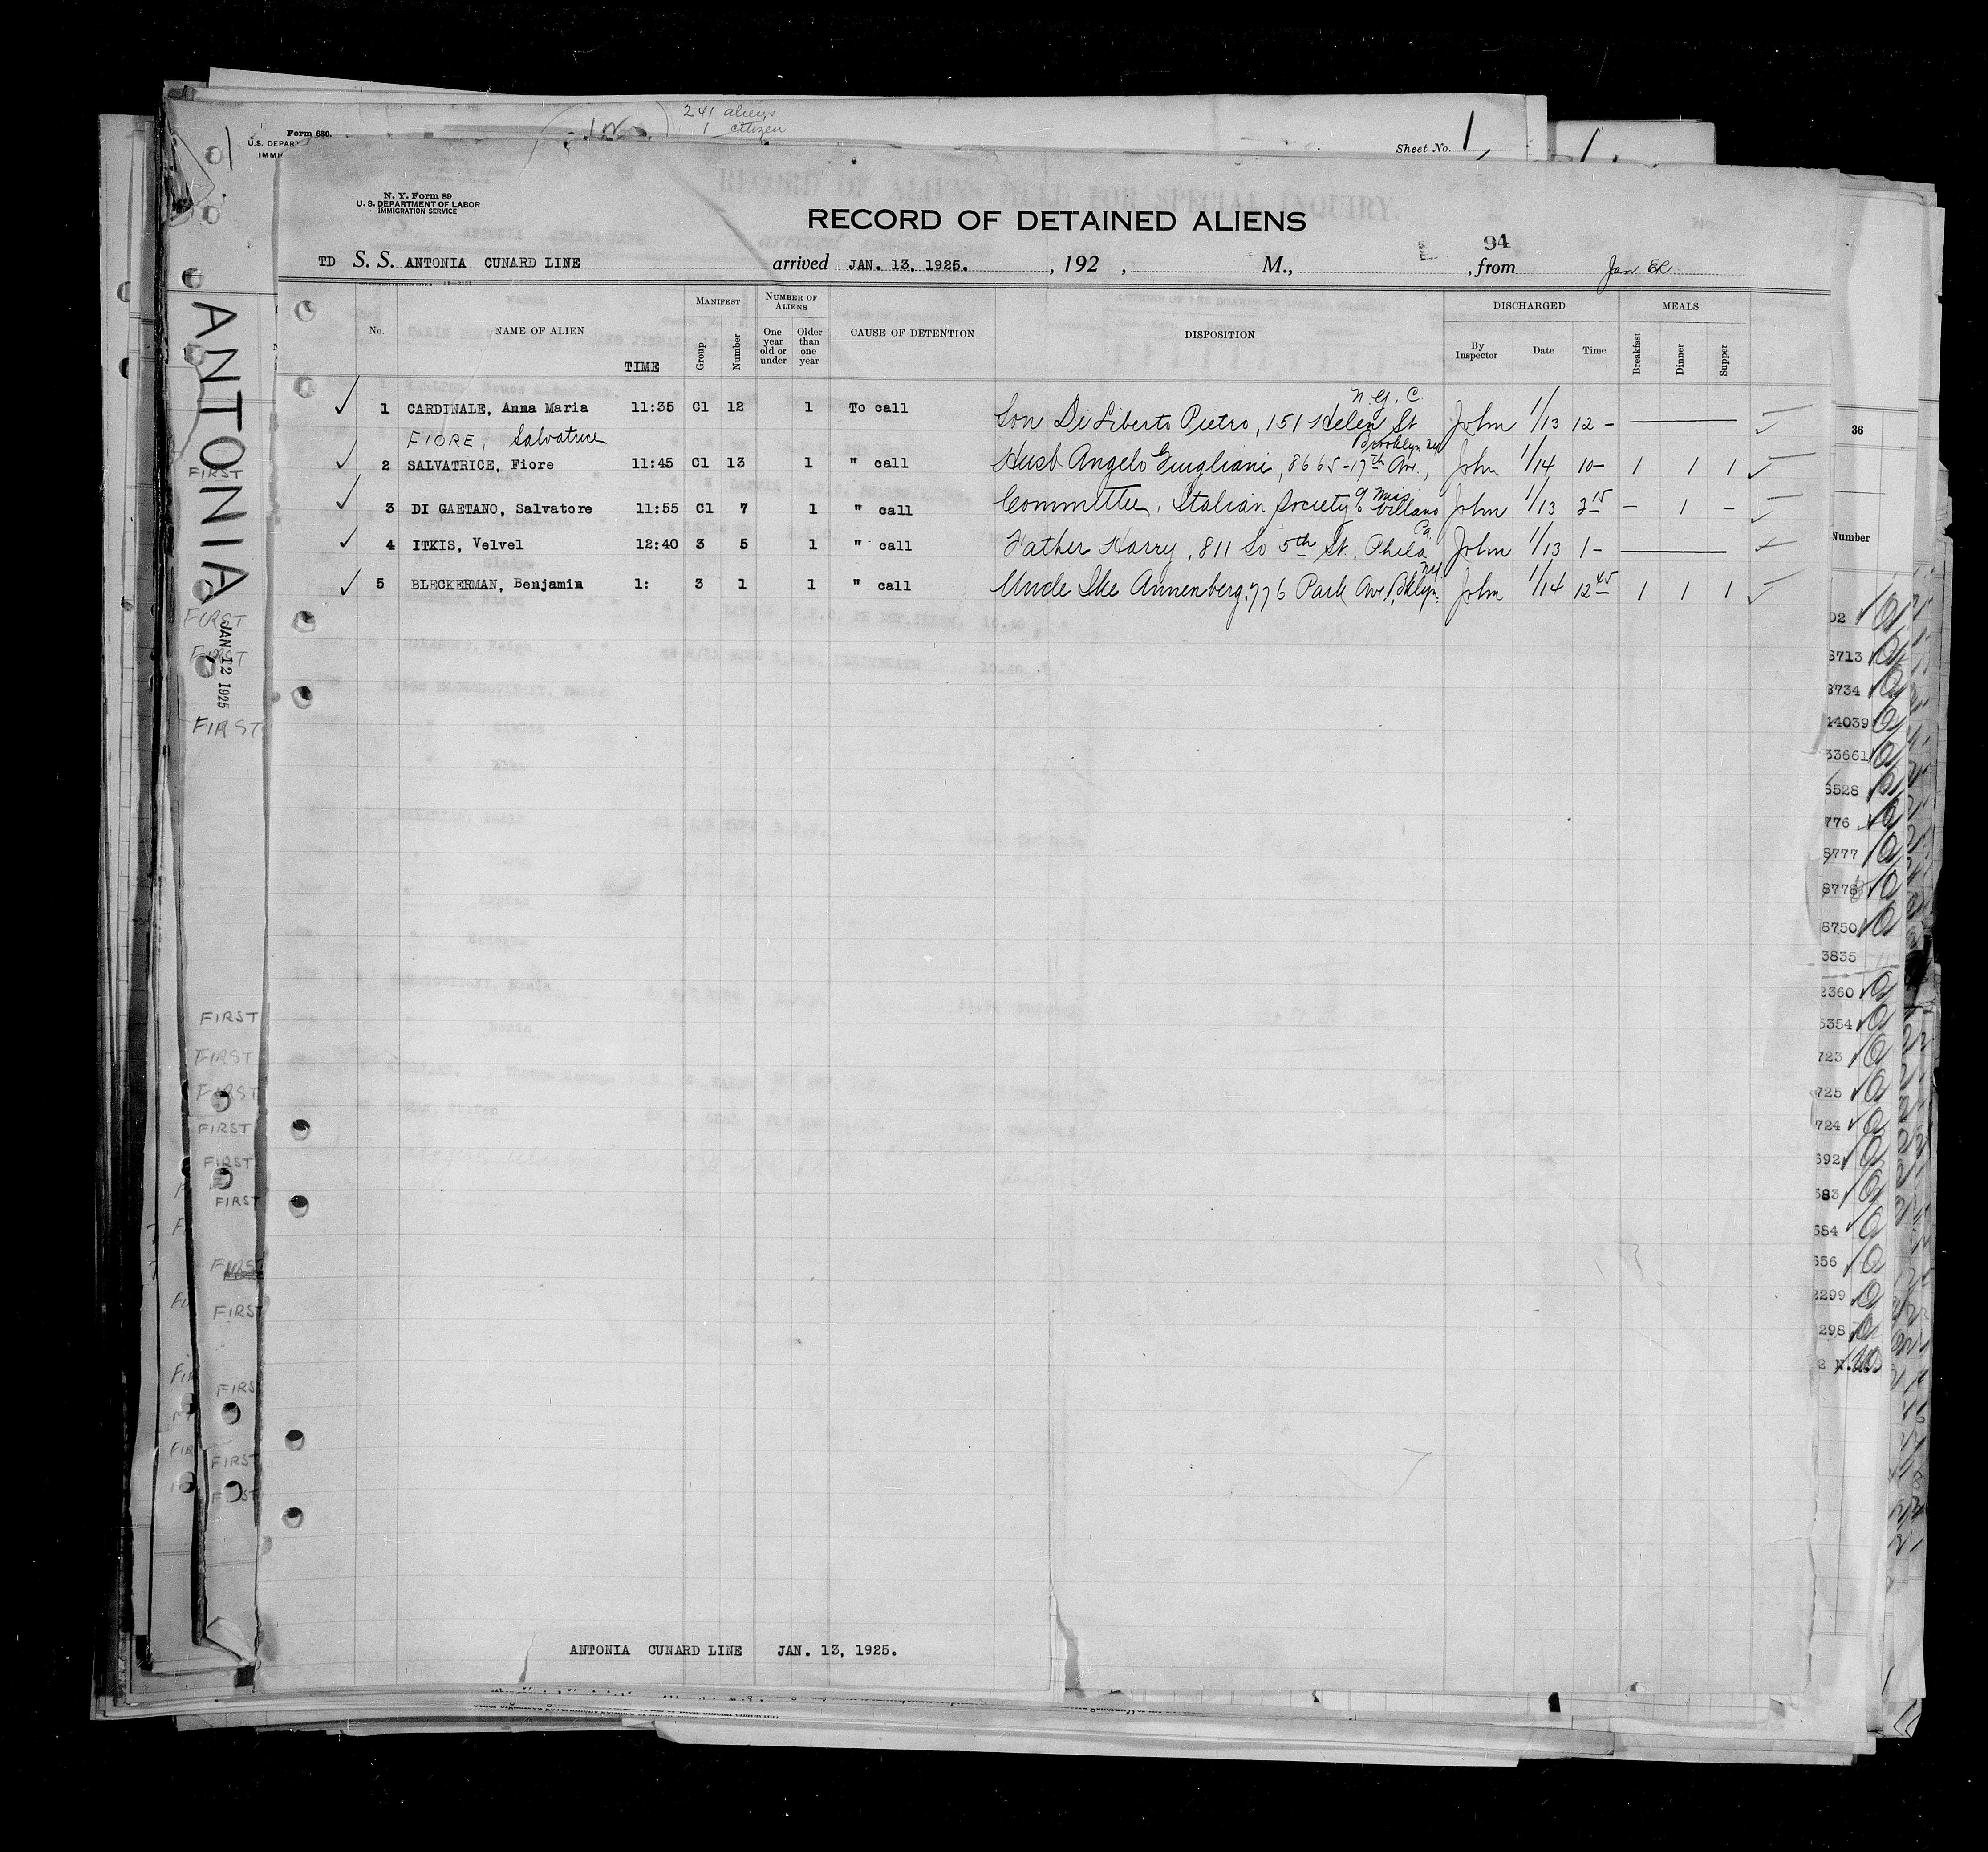 241 aliens
1 citizen
Form 680.
U.S. DEPART
IMMI
Sheet No. 1
N. Y. Form 89
U. S. DEPARTMENT OF LABOR
IMMIGRATION SERVICE
RECORD OF DETAINED ALIENS
94
TD S. S. ANTONIA CUNARD LINE arrived JAN. 13, 1925. , 192 , M., , from
No. NAME OF ALIEN TIME MANIFEST Group Number NUMBER OF ALIENS One year old or under Older than one year CAUSE OF DETENTION DISPOSITION DISCHARGED By Inspector Date Time MEALS Breakfast Dinner Supper
N.Y.C.
1 CARDINALE, Anna Maria 11:35 C1 12 1 To call Son Di Liberto Pietro, 151 Helen St John 1/13 12 -
FIORE, Salvatrice Brooklyn NY
2 SALVATRICE, Fiore 11:45 C1 13 1 " call Husb Angelo Guigliani, 8665-17th Ave., John 1/14 10- 1 1 1
3 DI GAETANO, Salvatore 11:55 C1 7 1 " call Committee, Italian Society % Miss Villano John 1/13 3 15 - 1 -
4 ITKIS, Velvel 12:40 3 5 1 " call Father Harry, 811 So 5th St. Phila Pa. John 1/13 1 -
5 BLECKERMAN, Benjamin 1: 3 1 1 " call Uncle Ike Annenberg, 776 Park Ave, Bklyn. NY John 1/14 12 45 1 1 1
ANTONIA
JAN 12 1925
FIRST
FIRST
FIRST
FIRST
FIRST
FIRST
FIRST
FIRST
FIRST
FIRST
FIRST
FIRST
FIRST
36
Number
02
8713
8734
14039
33661
6528
776
8777
8778
8750
3835
2360
5354
723
725
724
692
683
684
656
2299
298
ANTONIA CUNARD LINE JAN. 13, 1925.